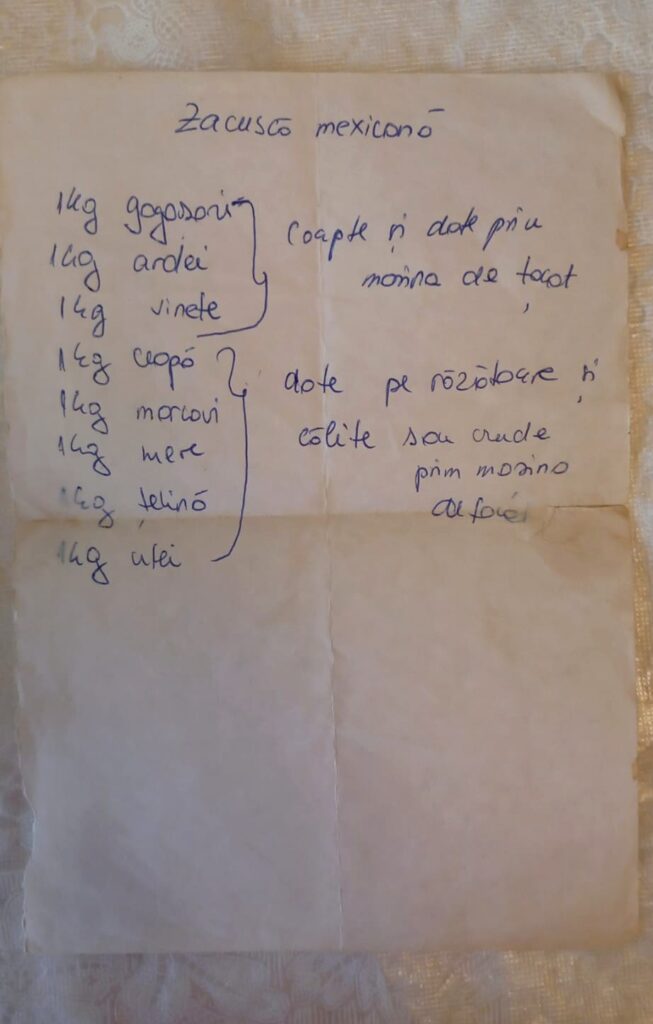 Zacuscă mexicană
1kg gogosari
1kg ardei
1kg vinete
coapte și date prin
mașina de tocat
1kg ceapă
1kg morcovi
1kg mere
1kg țelină
1kg ulei
date pe răzătoare și
călite sau crude
prim mașina
de tocat